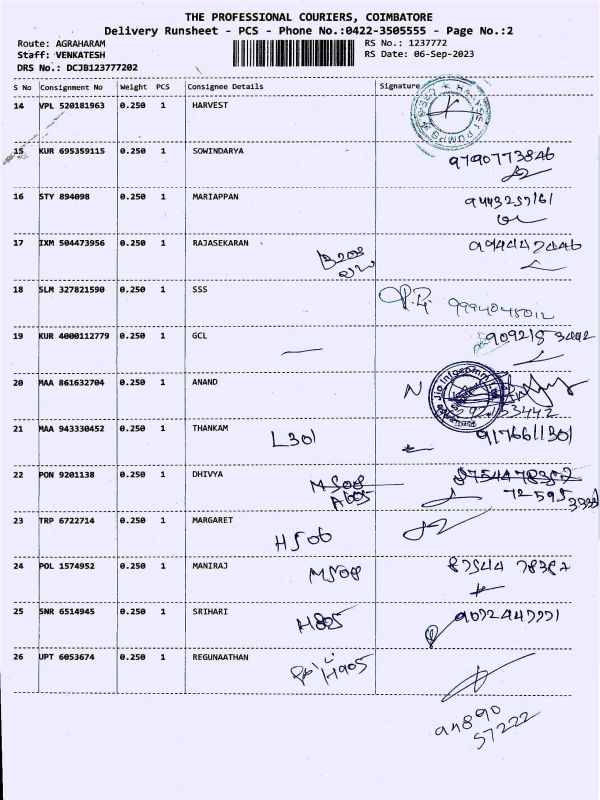 THE PROFESSIONAL COURIERS, COIMBATORE
Delivery Runsheet - PCS - Phone No.:0422-3505555 - Page No.:2
Route: AGRAHARAM
Staff: VENKATESH
DRS No.: DCJB123777202
RS No.: 1237772
RS Date: 06-Sep-2023
S No Consignment No Weight PCS Consignee Details Signature
14 VPL 520181963 0.250 1 HARVEST
15 KUR 695359115 0.250 1 SOWINDARYA 9790773846
16 STY 894098 0.250 1 MARIAPPAN
17 IXM 504473956 0.250 1 RAJASEKARAN
18 SLM 327821590 0.250 1 SSS
19 KUR 4000112779 0.250 1 GCL
20 MAA 861632704 0.250 1 ANAND N
21 MAA 943330452 0.250 1 THANKAM L301 9176611301
22 PON 9201138 0.250 1 DHIVYA M508
A605
23 TRP 6722714 0.250 1 MARGARET H506
24 POL 1574952 0.250 1 MANIRAJ M508
25 SNR 6514945 0.250 1 SRIHARI H805
26 UPT 6053674 0.250 1 REGUNAATHAN H905
57222